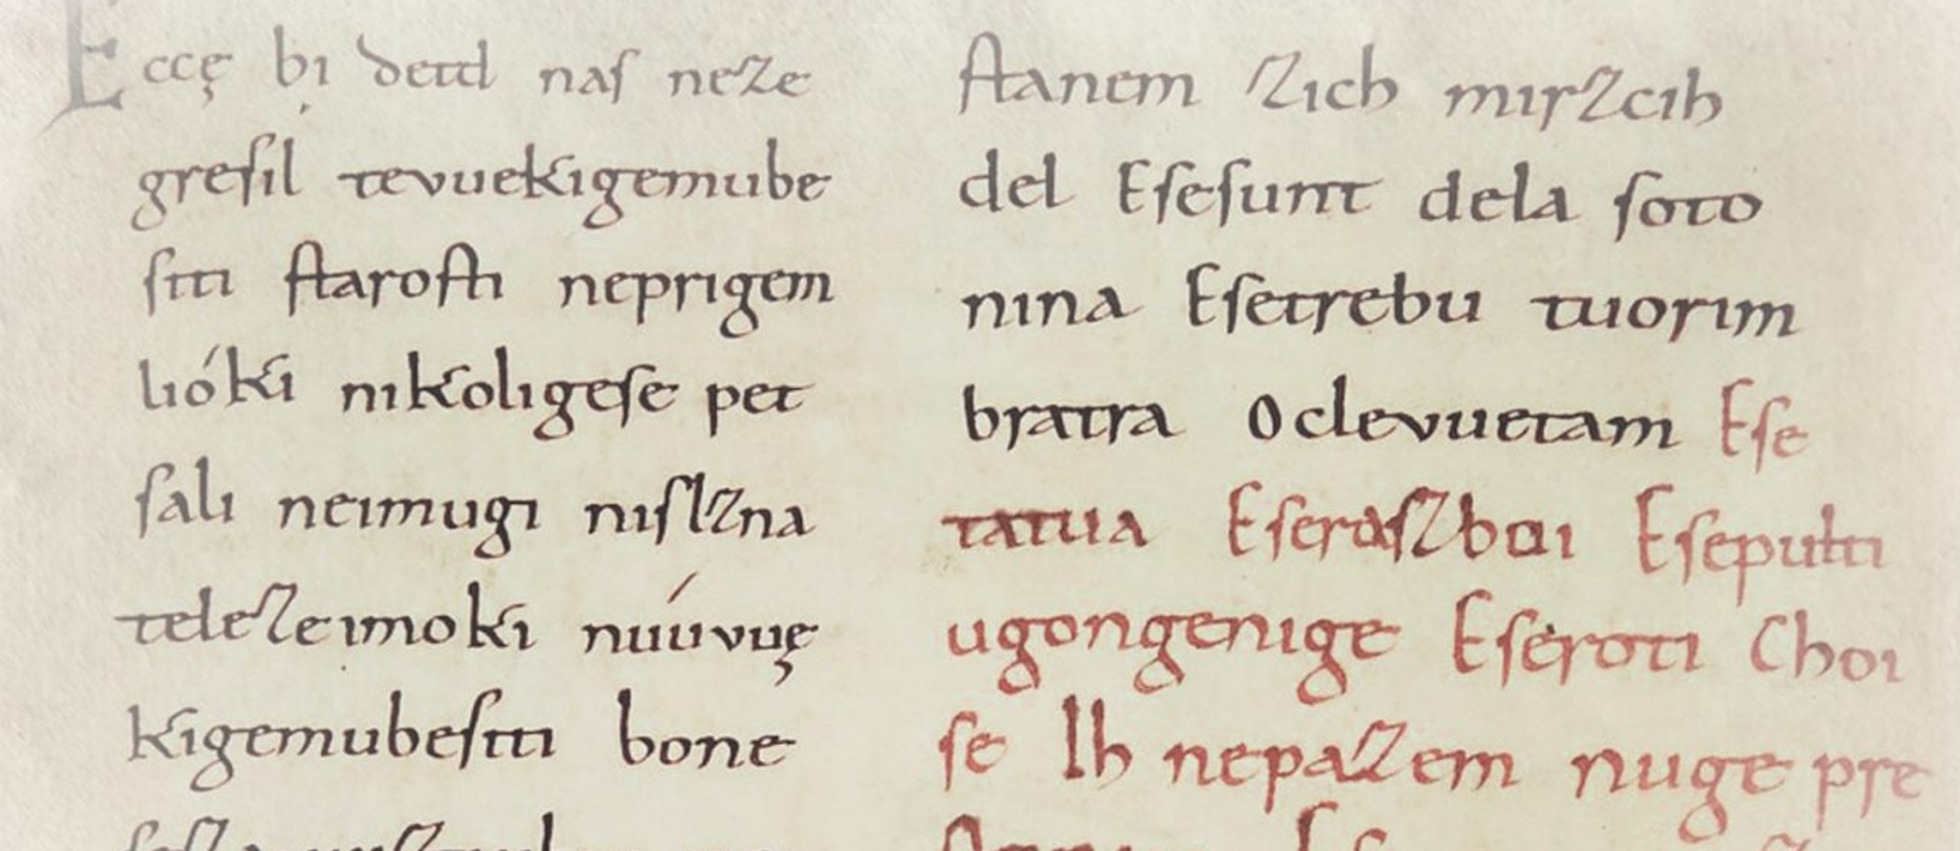 Eccę bi detd naſ neze
greſil tevuekigemube
ſiti ſtaroſti neprigem
lióki nikoligeſe pet
ſali neimugi niſlzna
telezeimoki nuúvuę
kigemubeſiti bone
ſtanem zich mirzcih
del Eſeſunt dela ſoto
nina Eſetrebu tuorim
bratra Oclevuetam Eſe
tatua Eſeraſzboi Eſepulti
ugongenige Eſeroti Choi
ſe Ih nepazem nuge pre